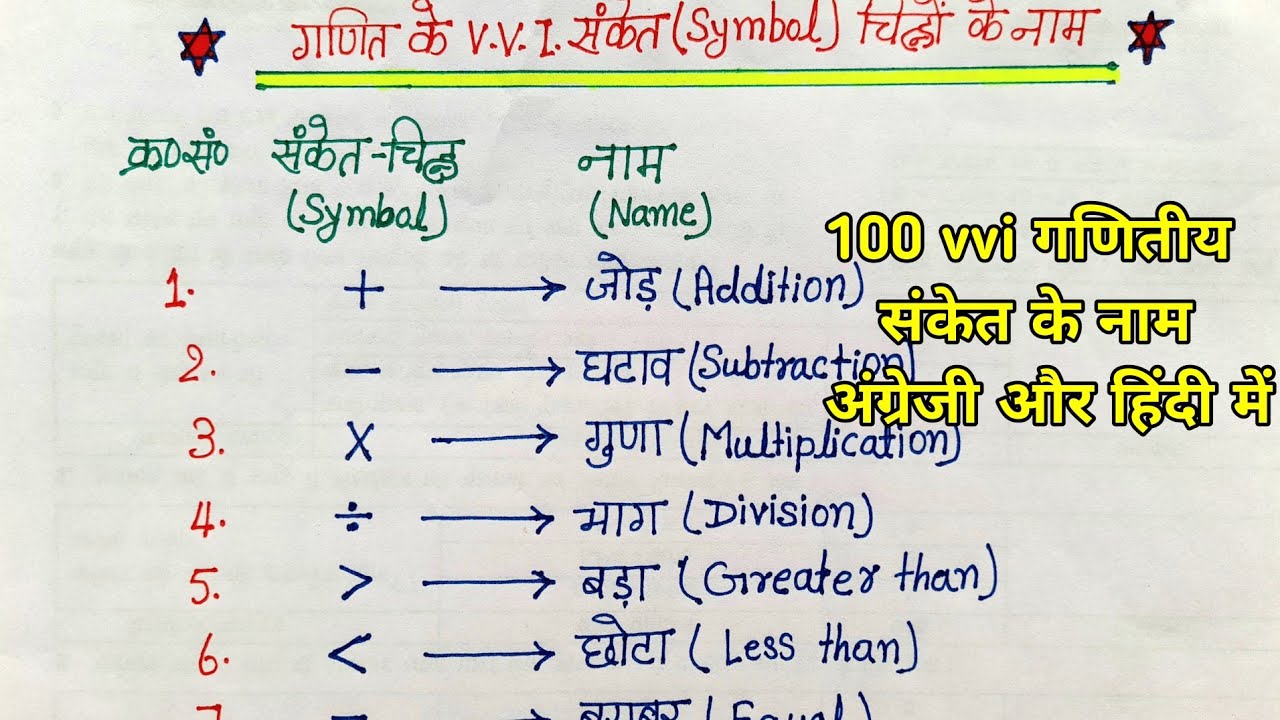 गणित के V.V.I. संकेत (Symbol) चिह्नों के नाम
क्र०सं० संकेत-चिह्न नाम
(Symbol) (Name)
1. + → जोड़ (Addition)
2. − → घटाव (Subtraction)
3. × → गुणा (Multiplication)
4. ÷ → भाग (Division)
5. > → बड़ा (Greater than)
6. < → छोटा (Less than)
7. = → बराबर (Equal)
100 vvi गणितीय
संकेत के नाम
अंग्रेजी और हिंदी में